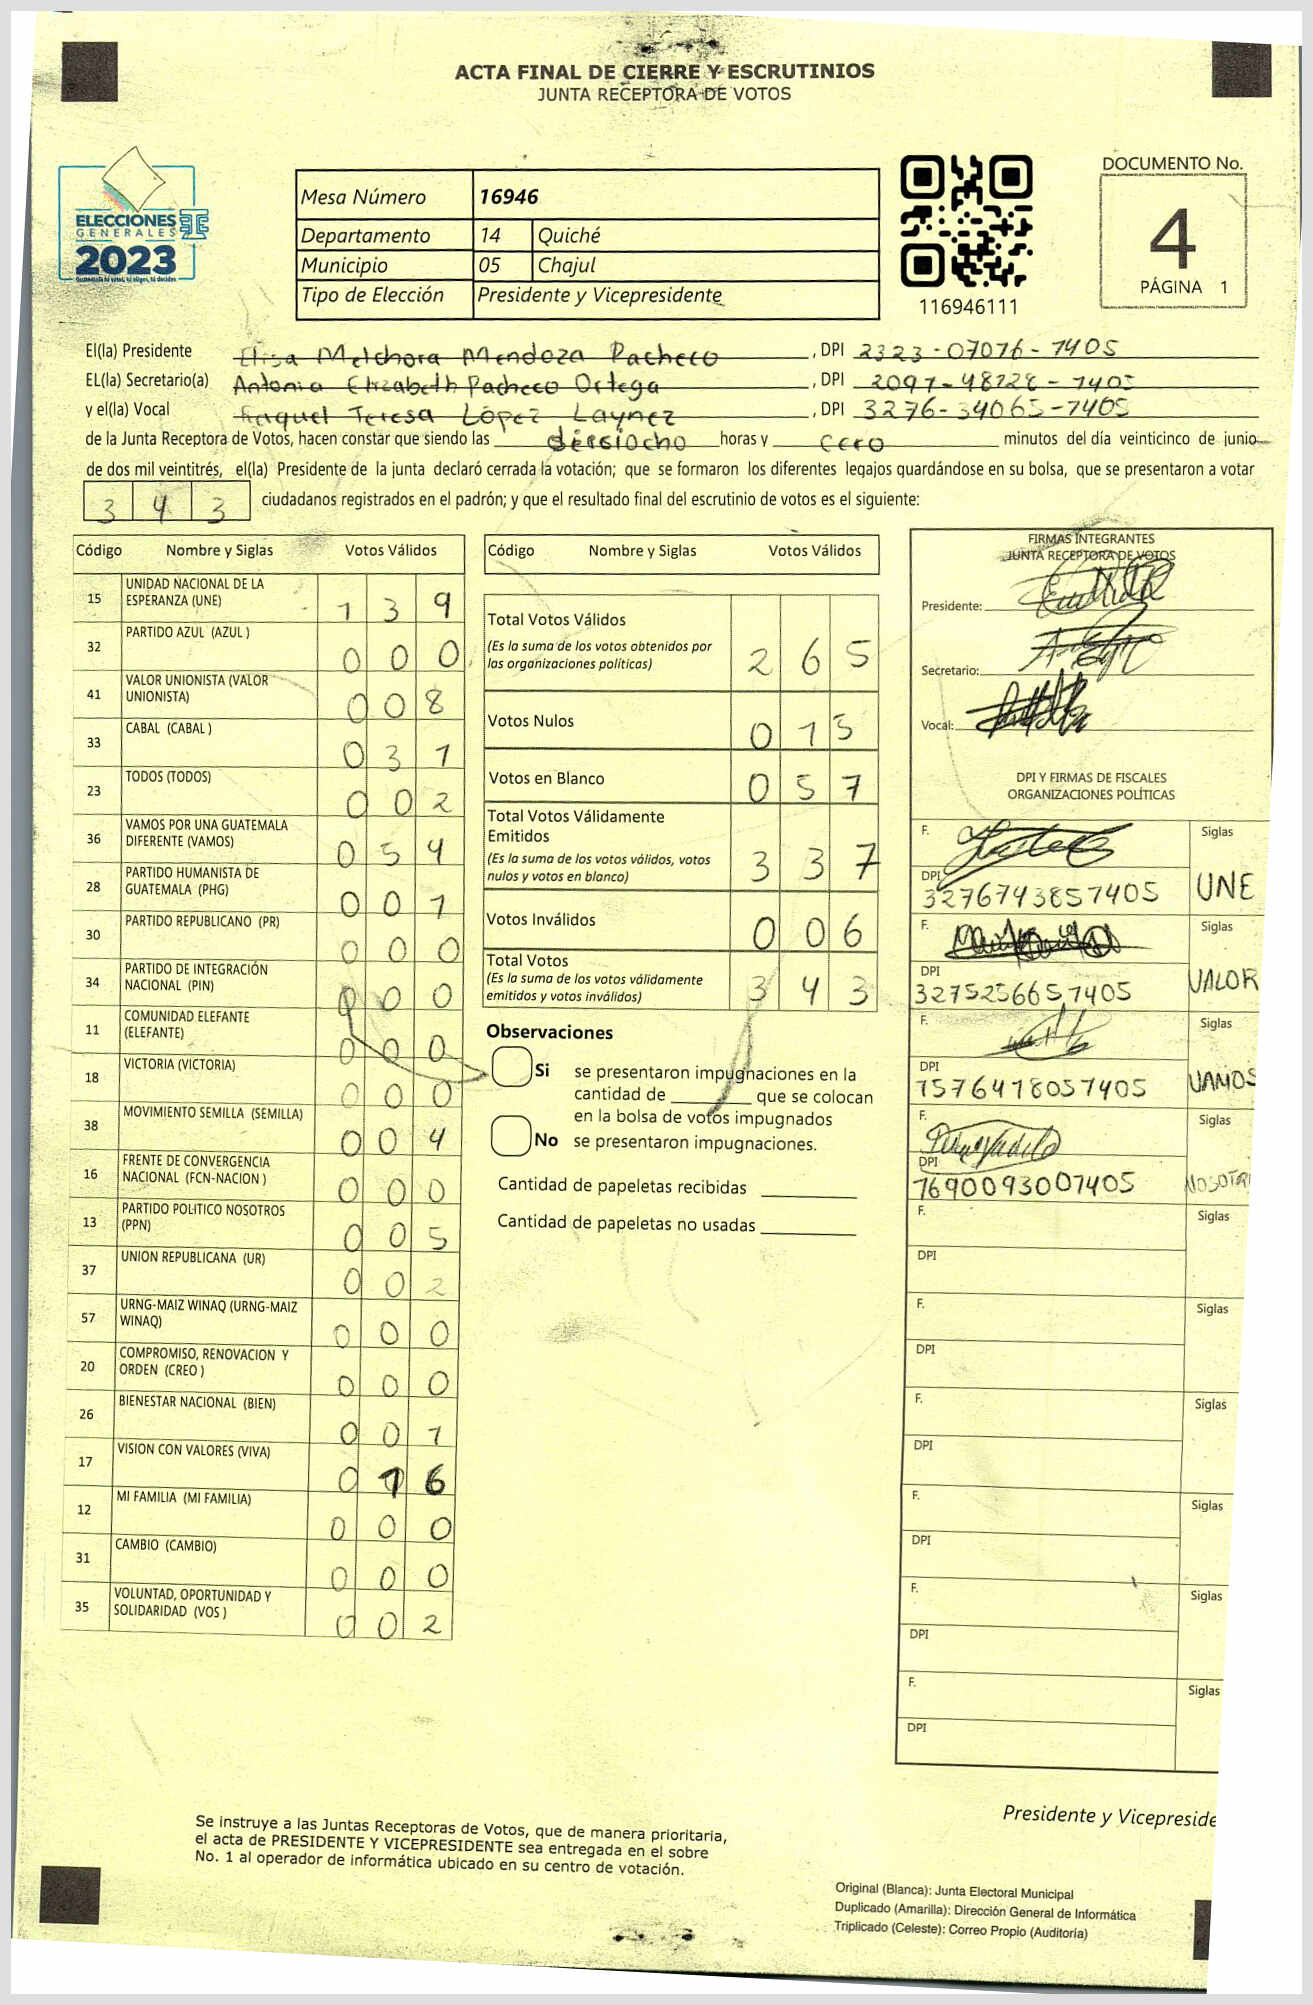 ACTA FINAL DE CIERRE Y ESCRUTINIOS
JUNTA RECEPTORA DE VOTOS
ELECCIONES
GENERALES
2023
Guatemala tú votas, tú eliges, tú decides
Mesa Número 16946
Departamento 14 Quiché
Municipio 05 Chajul
Tipo de Elección Presidente y Vicepresidente
116946111
DOCUMENTO No.
4
PÁGINA 1
El(la) Presidente Elisa Melchora Mendoza Pacheco , DPI 2323-07076-1405
EL(la) Secretario(a) Antonia Elizabeth Pacheco Ortega , DPI 2097-48728-1405
y el(la) Vocal Raquel Teresa López Laynez , DPI 3276-34065-1405
de la Junta Receptora de Votos, hacen constar que siendo las dieciocho horas y cero minutos del día veinticinco de junio
de dos mil veintitrés, el(la) Presidente de la junta declaró cerrada la votación; que se formaron los diferentes legajos guardándose en su bolsa, que se presentaron a votar
3 4 3 ciudadanos registrados en el padrón; y que el resultado final del escrutinio de votos es el siguiente:
Código Nombre y Siglas Votos Válidos
15 UNIDAD NACIONAL DE LA ESPERANZA (UNE) 1 3 9
32 PARTIDO AZUL (AZUL ) 0 0 0
41 VALOR UNIONISTA (VALOR UNIONISTA) 0 0 8
33 CABAL (CABAL ) 0 3 1
23 TODOS (TODOS) 0 0 2
36 VAMOS POR UNA GUATEMALA DIFERENTE (VAMOS) 0 5 4
28 PARTIDO HUMANISTA DE GUATEMALA (PHG) 0 0 1
30 PARTIDO REPUBLICANO (PR) 0 0 0
34 PARTIDO DE INTEGRACIÓN NACIONAL (PIN) 0 0 0
11 COMUNIDAD ELEFANTE (ELEFANTE) 0 0 0
18 VICTORIA (VICTORIA) 0 0 0
38 MOVIMIENTO SEMILLA (SEMILLA) 0 0 4
16 FRENTE DE CONVERGENCIA NACIONAL (FCN-NACION ) 0 0 0
13 PARTIDO POLITICO NOSOTROS (PPN) 0 0 5
37 UNION REPUBLICANA (UR) 0 0 2
57 URNG-MAIZ WINAQ (URNG-MAIZ WINAQ) 0 0 0
20 COMPROMISO, RENOVACION Y ORDEN (CREO ) 0 0 0
26 BIENESTAR NACIONAL (BIEN) 0 0 1
17 VISION CON VALORES (VIVA) 0 1 6
12 MI FAMILIA (MI FAMILIA) 0 0 0
31 CAMBIO (CAMBIO) 0 0 0
35 VOLUNTAD, OPORTUNIDAD Y SOLIDARIDAD (VOS ) 0 0 2
Código Nombre y Siglas Votos Válidos
Total Votos Válidos 2 6 5
(Es la suma de los votos obtenidos por
las organizaciones políticas)
Votos Nulos 0 1 5
Votos en Blanco 0 5 7
Total Votos Válidamente
Emitidos 3 3 7
(Es la suma de los votos válidos, votos
nulos y votos en blanco)
Votos Inválidos 0 0 6
Total Votos 3 4 3
(Es la suma de los votos válidamente
emitidos y votos inválidos)
Observaciones
Si se presentaron impugnaciones en la
cantidad de ________ que se colocan
en la bolsa de votos impugnados
No se presentaron impugnaciones.
Cantidad de papeletas recibidas
Cantidad de papeletas no usadas
FIRMAS INTEGRANTES
JUNTA RECEPTORA DE VOTOS
Presidente:
Secretario:
Vocal:
DPI Y FIRMAS DE FISCALES
ORGANIZACIONES POLÍTICAS
F. Siglas
DPI 3276743857405 UNE
F. Siglas
DPI 3275256657405 VALOR
F. Siglas
DPI 1576418051405 VAMOS
F. Siglas
DPI 1690093001405
F. Siglas
DPI
F. Siglas
DPI
F. Siglas
DPI
F. Siglas
DPI
F. Siglas
DPI
F. Siglas
DPI
Presidente y Vicepreside
Se instruye a las Juntas Receptoras de Votos, que de manera prioritaria,
el acta de PRESIDENTE Y VICEPRESIDENTE sea entregada en el sobre
No. 1 al operador de informática ubicado en su centro de votación.
Original (Blanca): Junta Electoral Municipal
Duplicado (Amarilla): Dirección General de Informática
Triplicado (Celeste): Correo Propio (Auditoría)